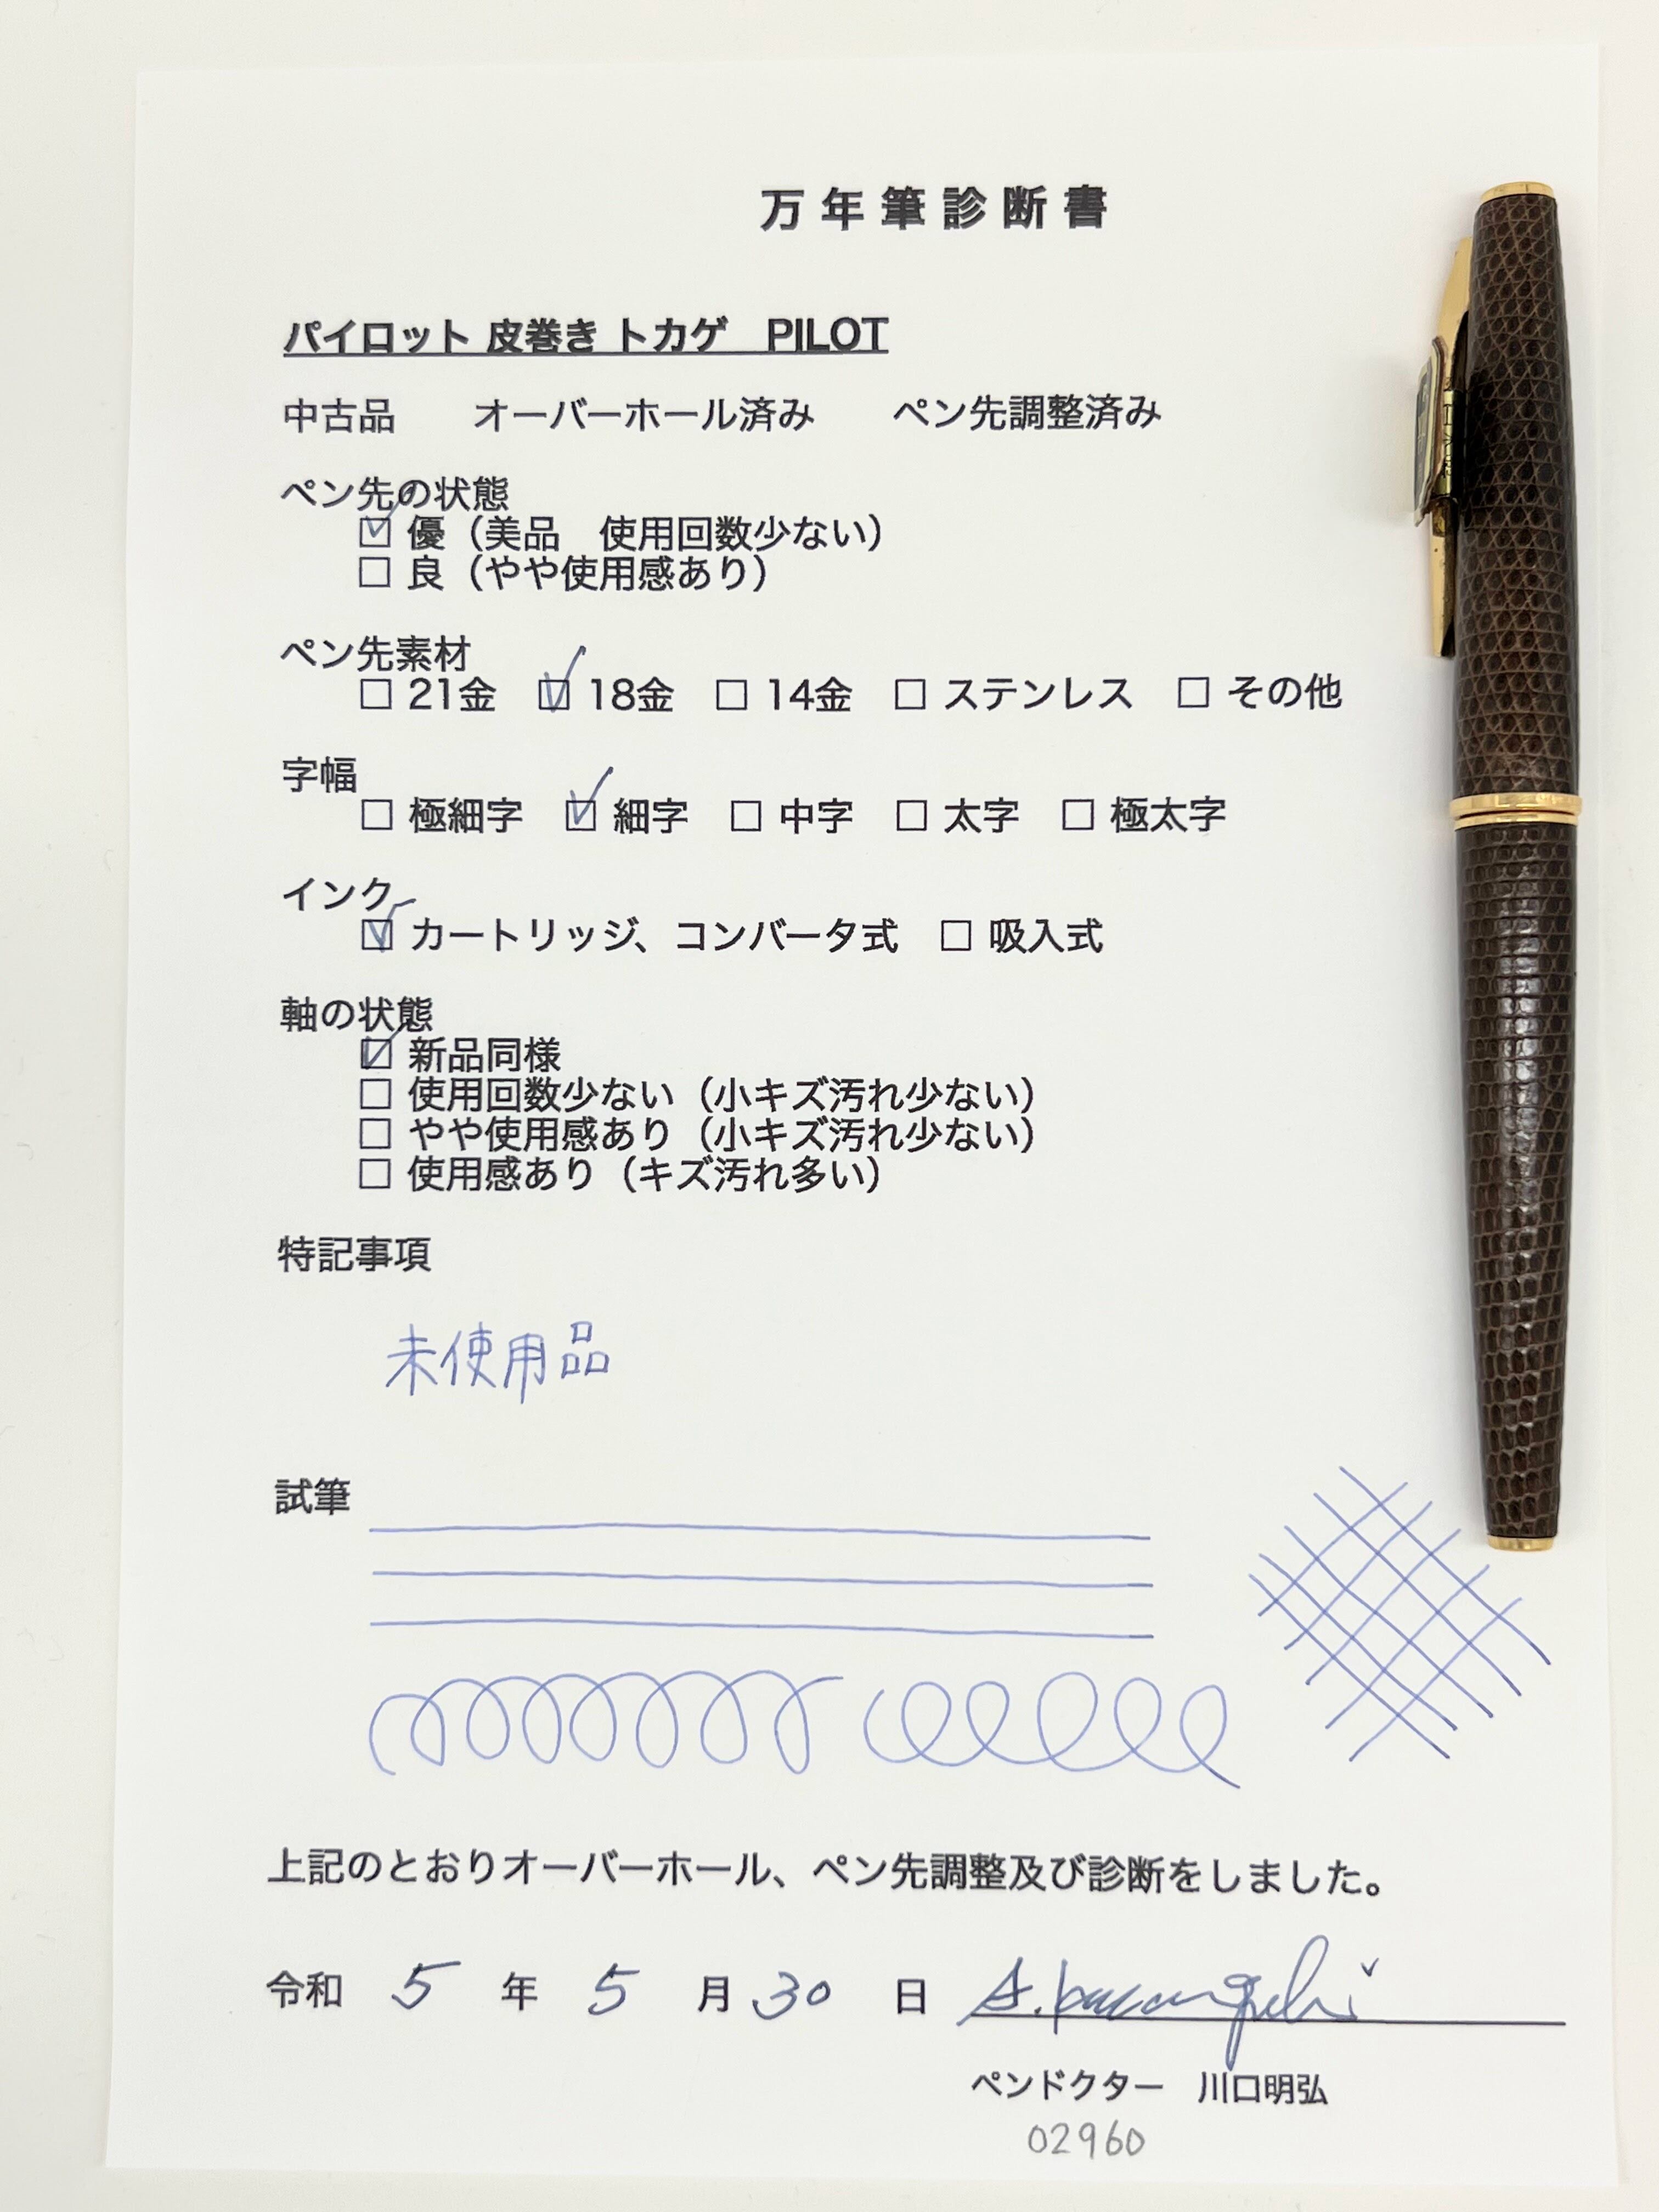 万年筆診断書
パイロット 皮巻き トカゲ　PILOT
中古品　　オーバーホール済み　　ペン先調整済み
ペン先の状態
☑ 優（美品　使用回数少ない）
☐ 良（やや使用感あり）
ペン先素材
☐ 21金　☑ 18金　☐ 14金　☐ ステンレス　☐ その他
字幅
☐ 極細字　☑ 細字　☐ 中字　☐ 太字　☐ 極太字
インク
☑ カートリッジ、コンバータ式　☐ 吸入式
軸の状態
☑ 新品同様
☐ 使用回数少ない（小キズ汚れ少ない）
☐ やや使用感あり（小キズ汚れ少ない）
☐ 使用感あり（キズ汚れ多い）
特記事項
未使用品
試筆
上記のとおりオーバーホール、ペン先調整及び診断をしました。
令和 5 年 5 月 30 日
ペンドクター　川口明弘
02960